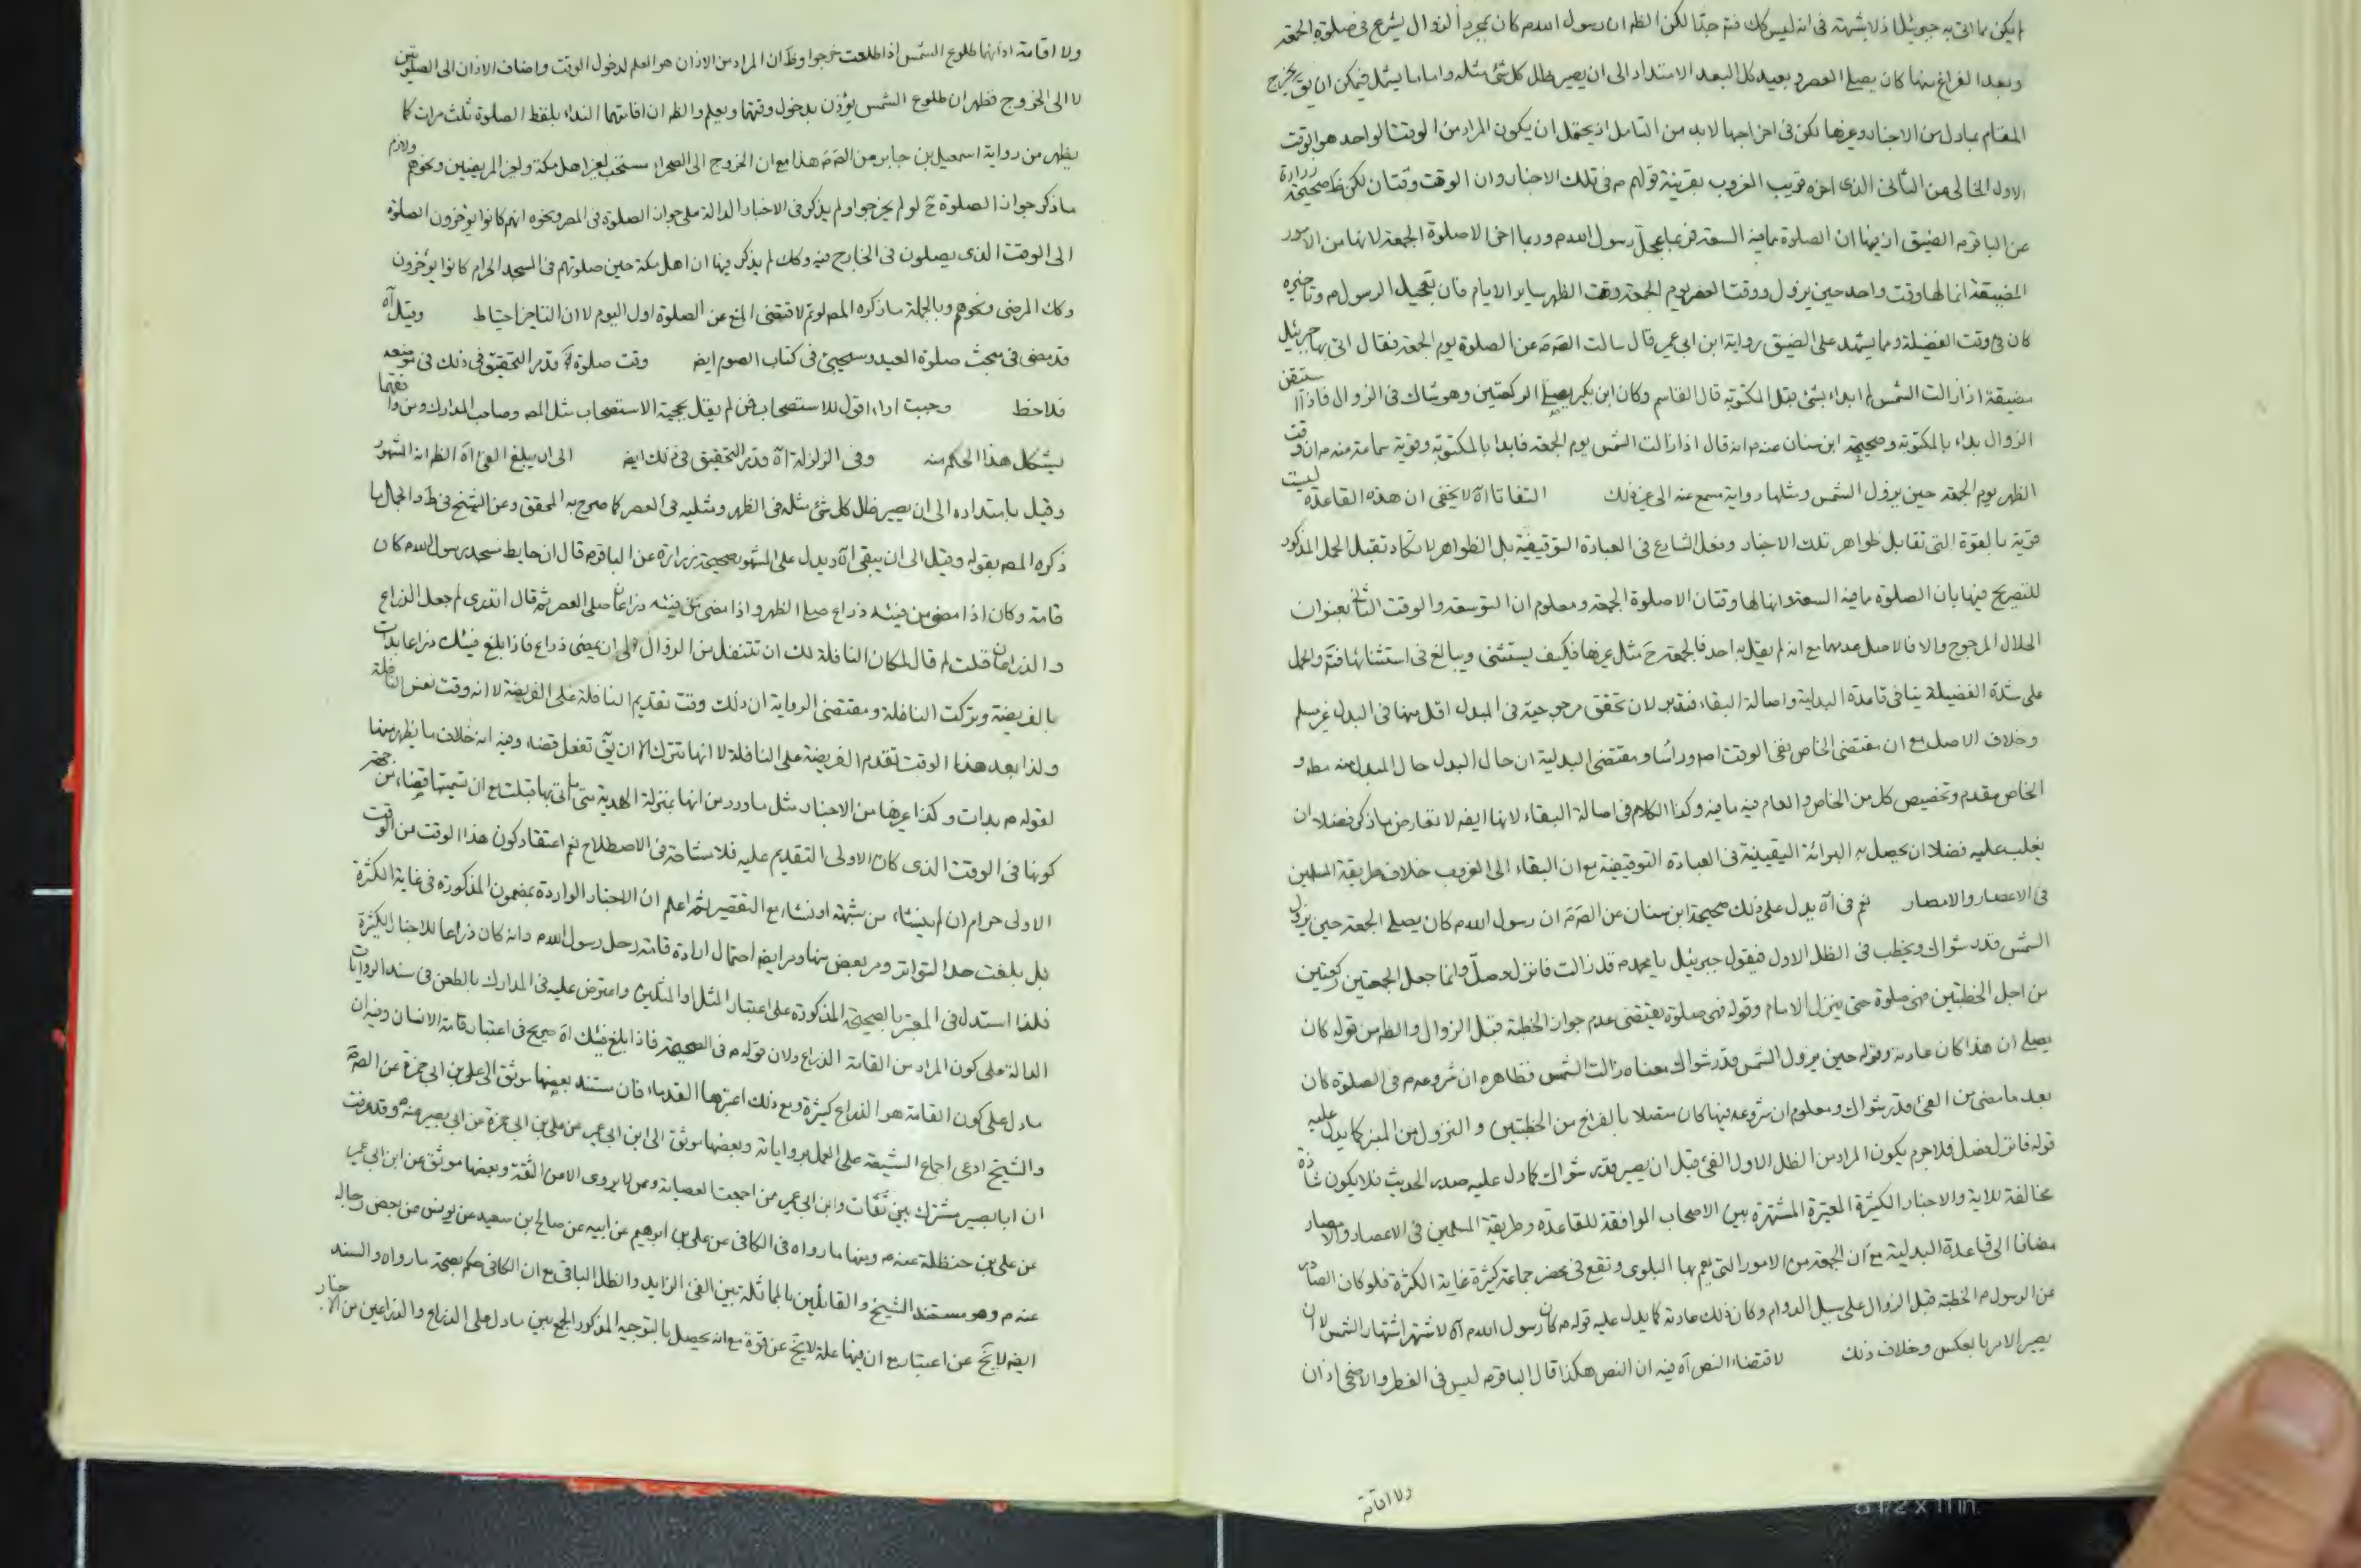 لم يكن مما اتى به جبرئيل اذ لا شبهة فى انه ليس كك فتم جدّا لكن الظم ان رسول اللهم كان بمجرد الزوال يشرع فى صلوة الجمعة
وبعد الفراغ منها كان يصلى العصر و بعيد كل البعد الامتداد الى ان يصير ظل كل شئ مثله واما ما يشمل فيمكن ان يق يخرج
المقام بما دل من الاخبار وغيرها لكن فى اخراجها لابد من التامل اذ يحتمل ان يكون المراد من الوقت الواحد هو الوقت
الاول الخالى من الثانى الذى اخره قريب الغروب بقرينة قولهم م فى تلك الاخبار وان الوقت وقتان لكن ظ صحيحة زرارة
عن الباقر م الضيق اذ فيها ان الصلوة مما فيه السعة فربما عجل رسول اللهم وربما اخر الا صلوة الجمعة لانها من الامور
المضيقة انما لها وقت واحد حين يزول ووقت العصر يوم الجمعة وقت الظهر ساير الايام فان تعجيل الرسول م وتاخيره
كان فى وقت الفضيلة ومما يشهد على الضيق رواية ابن ابى عمير قال سالت الصم عن الصلوة يوم الجمعة فقال اتى بها جبرئيل
مضيقة اذا زالت الشمس لم ابداء بشئ قبل المكتوبة قال القاسم وكان ابن بكير يصلى الركعتين وهو شاك فى الزوال فاذا استيقن
الزوال بداء بالمكتوبة وصحيحة ابن سنان عنه م انه قال اذا زالت الشمس يوم الجمعة فابدا بالمكتوبة وقوية سماعة عنه م ان وقت
الظهر يوم الجمعة حين يزول الشمس ومثلها رواية مسمع عنه الى غير ذلك التفاتا آه لا يخفى ان هذه القاعدة ليست
قوية بالقوة التى تقابل ظواهر تلك الاخبار وفعل الشارع فى العبادة التوقيفية بل الظواهر لا تكاد تقبل الحمل المذكور
للتصريح فيها بان الصلوة مما فيه السعة وانها لها وقتان الا صلوة الجمعة ومعلوم ان التوسعة والوقت الثانى بعنوان
الحلال المرجوح والا فالاصل عدمها مع انه لم يقل به احد فالجمعة ح مثل غيرها فكيف يستثنى ويبالغ فى استثنائها فتم والحمل
على شدة الفضيلة ينافى قاعدة البدلية واصالة البقاء فتدبر لان تحقق مرجوحية فى المبدل اقل منها فى البدل غير مسلم
وخلاف الاصل مع ان مقتضى الخاص نفى الوقت اصم وراسا ومقتضى البدلية ان حال البدل حال المبدل منه مطم و
الخاص مقدم وتخصيص كل من الخاص والعام فيه ما فيه وكذا الكلام فى اصالة البقاء لانها ايضم لا تعارض ما ذكر فضلا ان
يغلب عليه فضلا ان يحصل به البرائة اليقينية فى العبادة التوقيفية مع ان البقاء الى الغروب خلاف طريقة المسلمين
فى الاعصار والامصار نعم فى آه يدل على ذلك صحيحة ابن سنان عن الصم ان رسول اللهم كان يصلى الجمعة حين يزول
الشمس قدر شراك ويخطب فى الظل الاول فيقول جبرئيل يا محمد م قد زالت فانزل وصلّ وانما جعل الجمعتين ركعتين
من اجل الخطبتين فهى صلوة حتى ينزل الامام وقوله فهى صلوة يقتضى عدم جواز الخطبة قبل الزوال والظم من قوله كان
يصلى ان هذا كان عادته وقوله حين يزول الشمس قدر شراك معناه زالت الشمس فظاهره ان شروعه م فى الصلوة كان
بعد ما مضى من الفئ قدر شراك ومعلوم ان شروعه فيها كان متصلا بالفراغ من الخطبتين و النزول من المنبر كما يدل عليه
قوله فانزل فصل فلا جرم يكون المراد من الظل الاول الفئ قبل ان يصير قدر شراك كما دل عليه صدر الحديث فلا يكون شاذة
مخالفة للاية والاخبار الكثيرة المعتبرة المشتهرة بين الاصحاب الموافقة للقاعدة وطريقة المسلمين فى الاعصار والامصار
مضافا الى قاعدة البدلية مع ان الجمعة من الامور التى يعم بها البلوى وتقع فى محضر جماعة كثيرة غاية الكثرة فلو كان الصادر
عن الرسول م الخطبة قبل الزوال على سبيل الدوام وكان ذلك عادته كما يدل عليه قوله م كان رسول اللهم آه لاشتهر اشتهار الشمس لا ان
يصير الامر بالعكس وخلاف ذلك لاقتضاء النص آه فيه ان النص هكذا قال الباقر م ليس فى الفطر والاضحى اذان
ولا اقامة
ولا اقامة اذانهما طلوع الشمس اذا طلعت خرجوا وظ ان المراد من الاذان هو العلم لدخول الوقت واضاف الاذان الى الصلوتين
لا الى الخروج فظهر ان طلوع الشمس يؤذن بدخول وقتهما ويعلم والظم ان اقامتهما النداء بلفظ الصلوة ثلث مرات كما
يظهر من رواية اسمعيل بن جابر عن الصم هذا مع ان الخروج الى الصحراء مستحب لغير اهل مكة ولغير المريضين ونحوهم ولازم
ما ذكر جواز الصلوة ح لو لم يخرجوا ولم يذكر فى الاخبار الدالة على جواز الصلوة فى المصر ونحوه انهم كانوا يؤخرون الصلوة
الى الوقت الذى يصلون فى الخارج فيه وكك لم يذكر فيها ان اهل مكة حين صلوتهم فى المسجد الحرام كانوا يؤخرون
وكك المرضى ونحوهم وبالجملة ما ذكره المصم لو تم لاقتضى المنع عن الصلوة اول اليوم لا ان التاخير احتياط وقيل آه
قد مضى فى مبحث صلوة العيد وسيجئ فى كتاب الصوم ايضم وقت صلوة آه قد مر التحقيق فى ذلك فى موضعه
فلاحظ وجبت اداء اقول للاستصحاب فمن لم يقل بحجية الاستصحاب مثل المصم وصاحب المدارك ومن وافقهما
يشكل هذا الحكم منه وفى الزلزلة آه قد مر التحقيق فى ذلك ايضم الى ان يبلغ الفئ آه الظم انه المشهور
وقيل بامتداده الى ان يصير ظل كل شئ مثله فى الظهر ومثليه فى العصر كما صرح به المحقق وعن الشيخ فى ط والجمل ما
ذكره المصم بقوله وقيل الى ان يبقى آه ويدل على المشهور صحيحة زرارة عن الباقر م قال ان حايط مسجد رسول اللهم كان
قامة وكان اذا مضى من فيئه ذراع صلى الظهر واذا مضى من فيئه ذراعان صلى العصر ثم قال اتدرى لم جعل الذراع
و الذراعان قلت لم قال لمكان النافلة لك ان تتنفل من الزوال الى ان يمضى ذراع فاذا بلغ فيئك ذراعا بدات
بالفريضة وتركت النافلة ومقتضى الرواية ان ذلك وقت تقديم النافلة على الفريضة لا انه وقت نفس النافلة
ولذا بعد هذا الوقت تقدم الفريضة على النافلة لا انها تترك الا ان يق تفعل قضاء وفيه انه خلاف ما يظهر منها
لقوله م بدات وكذا غيرها من الاخبار مثل ما ورد من انها بمنزلة الهدية متى ما اتى بها قبلت مع ان تسميتها قضاء من
كونها فى الوقت الذى كان الاولى التقديم عليه فلا مشاحة فى الاصطلاح نعم اعتقاد كون هذا الوقت من الوقت
الاولى حرام ان لم ينشاء من شبهة او نشاء مع التقصير ثم اعلم ان الاخبار الواردة بمضمون المذكورة فى غاية الكثرة
بل بلغت حد التواتر ومر بعض منها ومر ايضم احتمال ارادة قامة رحل رسول اللهم وانه كان ذراعا للاخبار الكثيرة
فلذا استدل فى المعتبر بالصحيحة المذكورة على اعتبار المثل والمثلين واعترض عليه فى المدارك بالطعن فى سند الروايات
الدالة على كون المراد من القامة الذراع ولان قوله م فى الصحيحة فاذا بلغ فيئك آه صريح فى اعتبار قامة الانسان وفيه ان
ما دل على كون القامة هو الذراع كثيرة ومع ذلك اعتبرها القدماء فان مستند بعضها موثق الى على بن ابى حمزة عن الصم
والشيخ ادعى اجماع الشيعة على العمل برواياته وبعضها موثق الى ابن ابى عمير عن على بن ابى حمزة عن ابى بصير عنه م وقد عرفت
ان ابا بصير مشترك بين ثقات وابن ابى عمير من اجمعت العصابة وممن لا يروى الا من الثقة وبعضها موثق عن ابن ابى عمير
عن على بن حنظلة عنه م ومنها ما رواه فى الكافى عن على بن ابرهيم عن ابيه عن صالح بن سعيد عن يونس عن بعض رجاله
عنه م وهو مستند الشيخ و القائلين بالمماثلة بين الفئ الزايد والظل الباقى مع ان الكافى حكم بصحة ما رواه والسند
ايضم لا يخ عن اعتبار مع ان فيها علة لا يخ عن قوة مع انه يحصل بالتوجيه المذكور الجمع بين ما دل على الذراع والذراعين من الاخبار